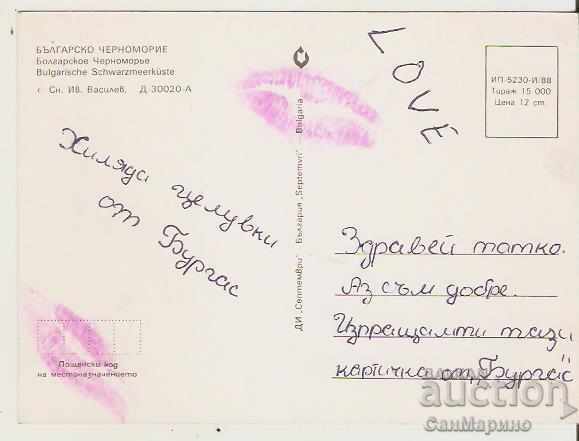 БЪЛГАРСКО ЧЕРНОМОРИЕ
Болгарское Черноморье
Bulgarische Schwarzmeerküste
Сн. Ив. Василев, Д-30020-А
LOVE
ИП-5230-И/88
Тираж 15 000
Цена 12 ст.
Хиляда целувки
от Бургас
ДИ „Септември" България „Septemvri" Bulgaria
Здравей татко.
Аз съм добре.
Изпращамти тази
картичка от „Бургас"
Пощенски код
на местоназначението
auction
СанМарино